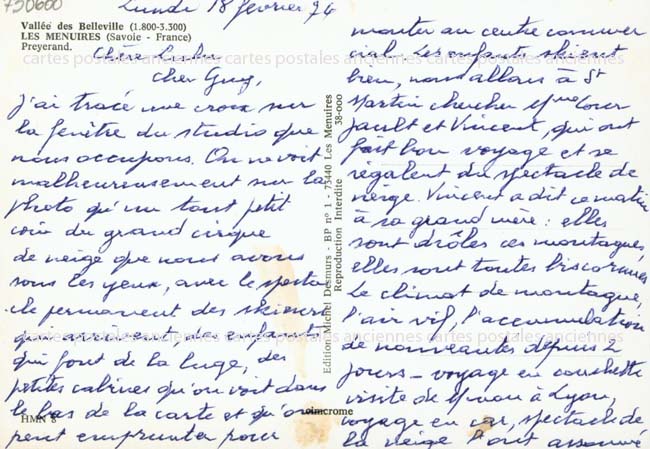 730600
Lundi 18 février 74
Vallée des Belleville (1.800-3.300)
LES MENUIRES (Savoie - France)
Preyerand.
Chère
Cher Guy,
J'ai tracé une croix sur
la fenêtre du studio que
nous occupons. On ne voit
malheureusement sur la
photo qu'un tout petit
coin du grand cirque
de neige que nous avons
sous les yeux, avec le specta-
cle permanent des skieurs
qui arrivent, des enfants
qui font de la luge, des
petites cabines qu'on voit dans
le bas de la carte et qu'on
peut emprunter pour
HMN 8
Editions Michel Desmurs - BP nº 1 - 73440 Les Menuires
Reproduction Interdite 38-0000
oimcrome
monter au centre commer
cial. Les enfants skient
bien, nous allons à St
Martin chercher Mme
et Vincent, qui ont
fait bon voyage et se
régalent du spectacle de
neige. Vincent a dit ce matin
à sa grand mère : elles
sont drôles ces montagnes,
elles sont toutes biscornues
Le climat de montagne,
l'air vif, l'accumulation
de nouveautés depuis 2
jours - voyage en couchette
visite de à Lyon,
voyage en car, spectacle de
la neige l'ont assommé
cartes postales anciennes cartes postales anciennes cartes postales anciennes
cartes postales anciennes cartes postales anciennes cartes postales anciennes